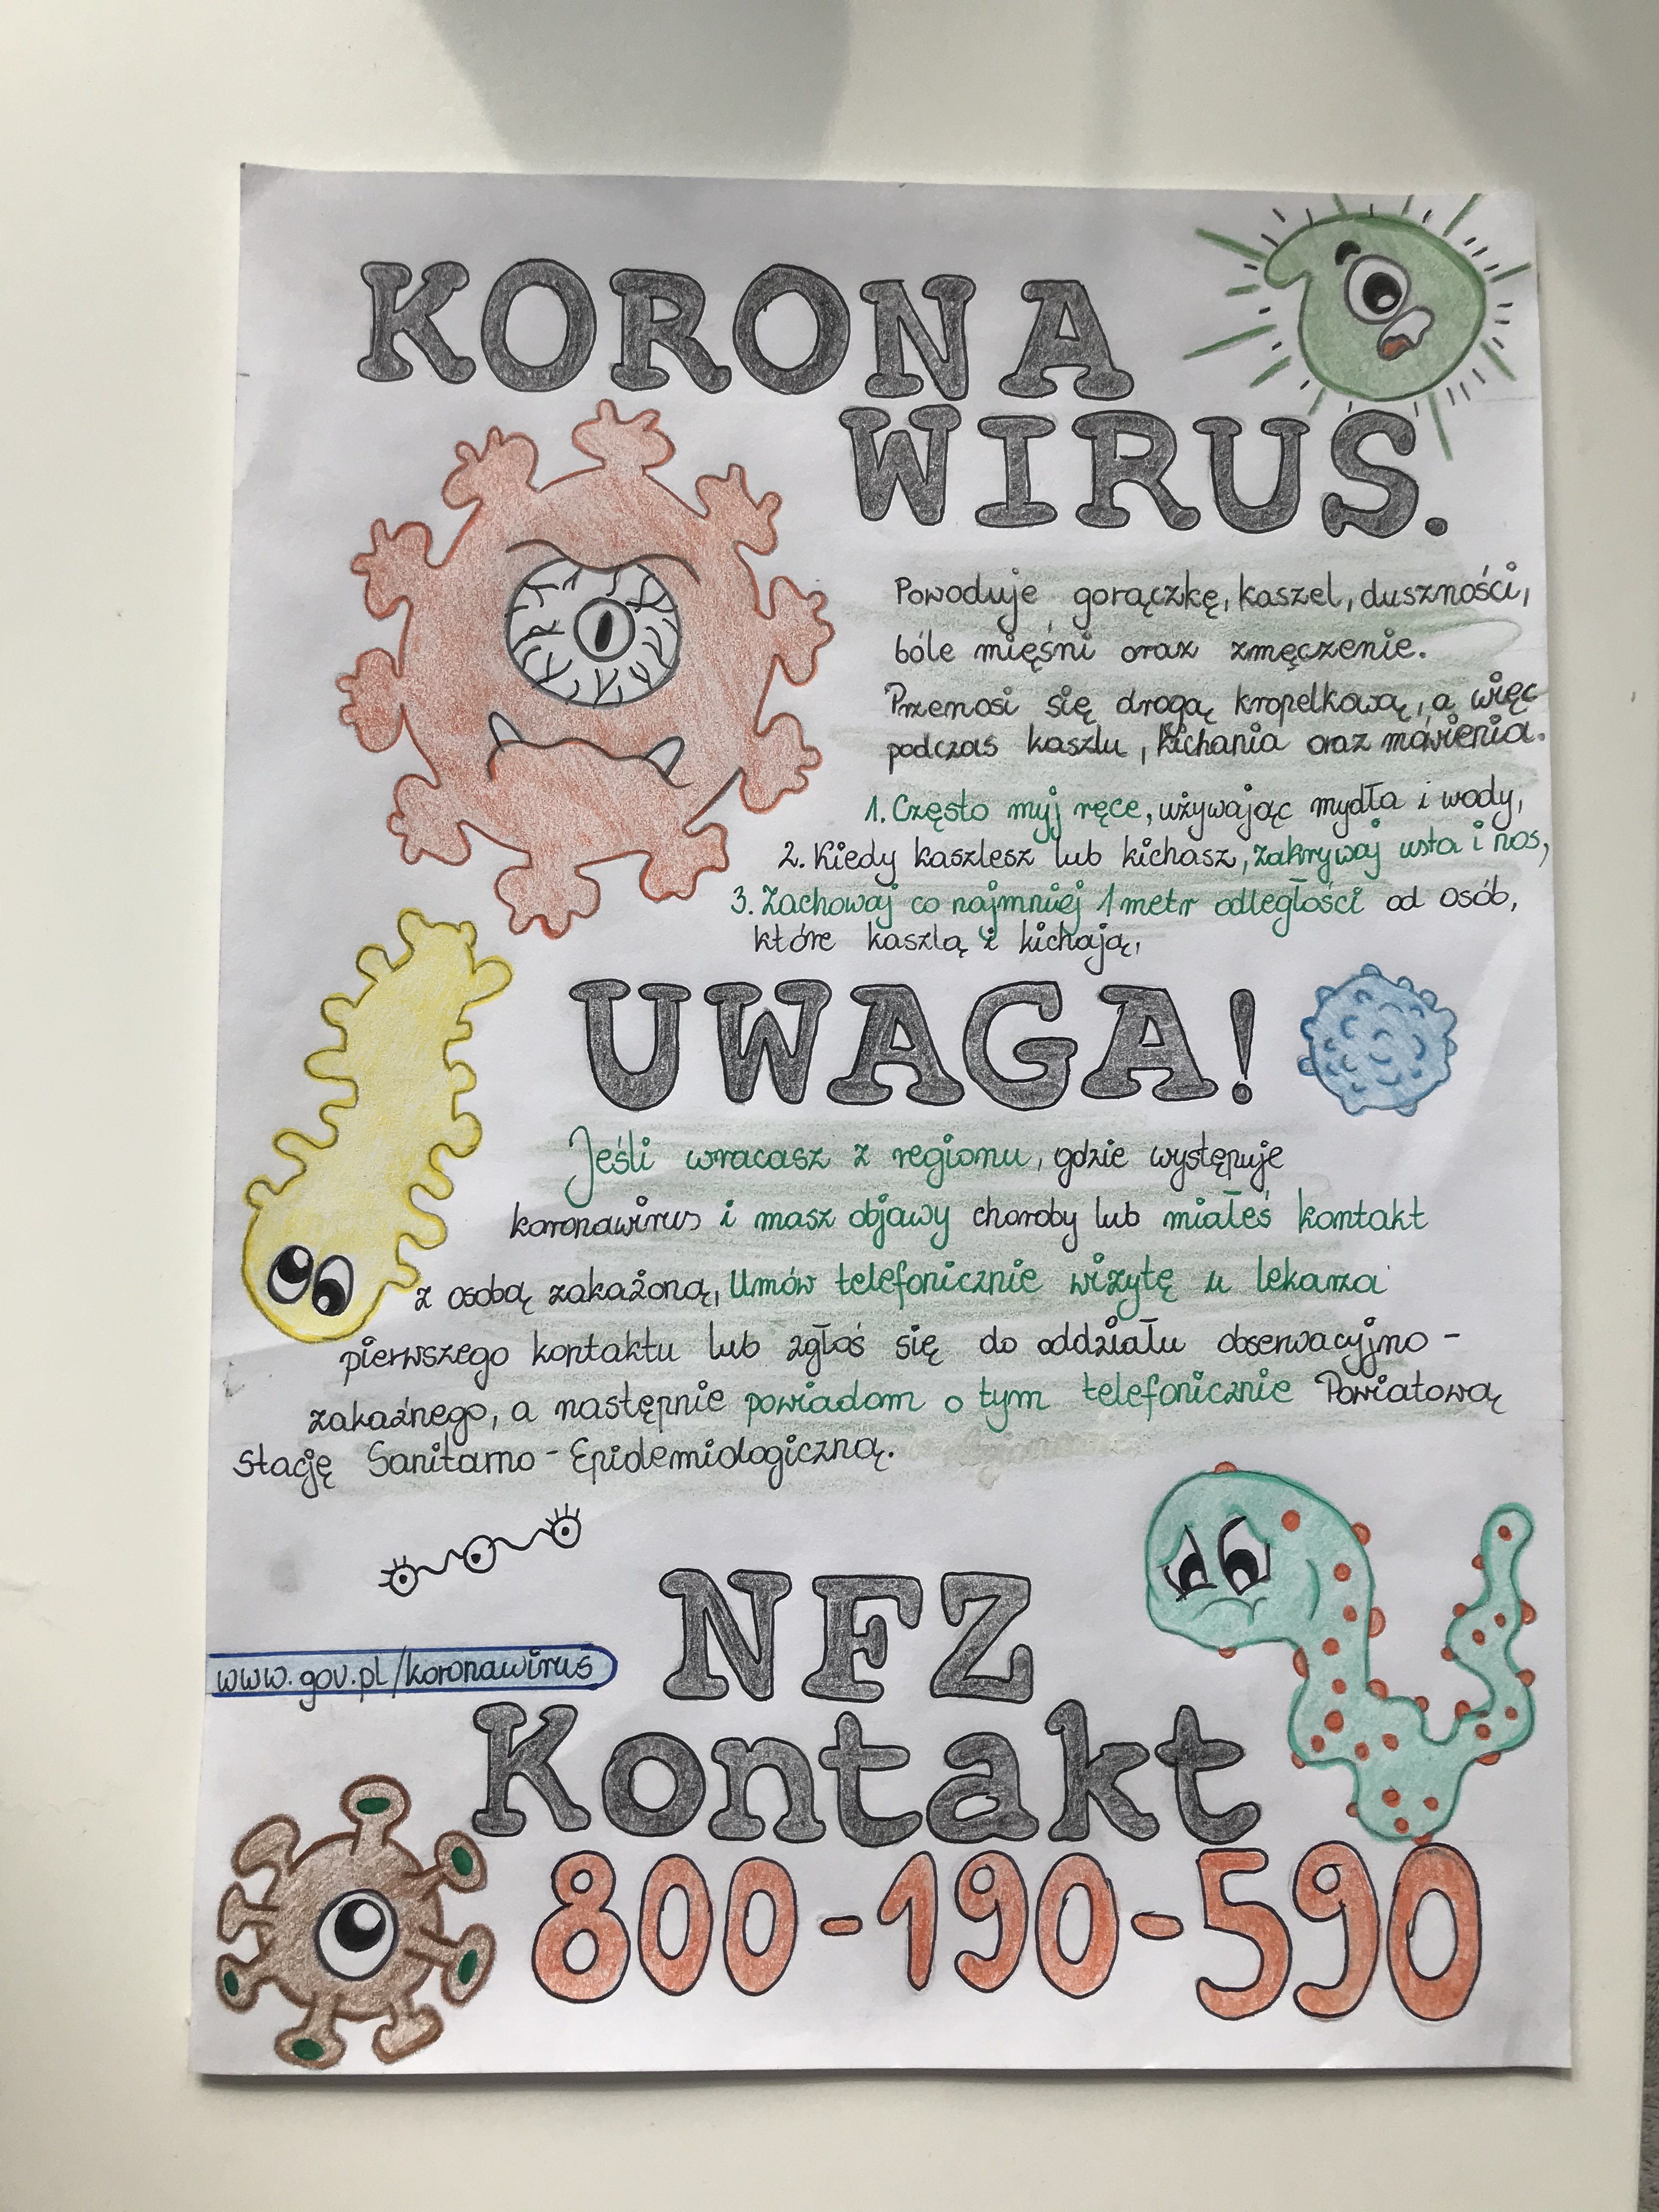 KORONA
WIRUS.
Powoduje gorączkę, kaszel, duszności,
bóle mięśni oraz zmęczenie.
Przenosi się drogą kropelkową, a więc
podczas kaszlu, kichania oraz mówienia.
1. Często myj ręce, używając mydła i wody,
2. Kiedy kaszlesz lub kichasz, zakrywaj usta i nos,
3. Zachowaj co najmniej 1 metr odległości od osób,
które kaszlą i kichają,
UWAGA!
Jeśli wracasz z regionu, gdzie występuje
koronawirus i masz objawy choroby lub miałeś kontakt
z osobą zakażoną, Umów telefonicznie wizytę u lekarza
pierwszego kontaktu lub zgłoś się do oddziału obserwacyjno-
zakaźnego, a następnie powiadom o tym telefonicznie Powiatową
Stację Sanitarno-Epidemiologiczną.
NFZ
www.gov.pl/koronawirus
Kontakt
800-190-590